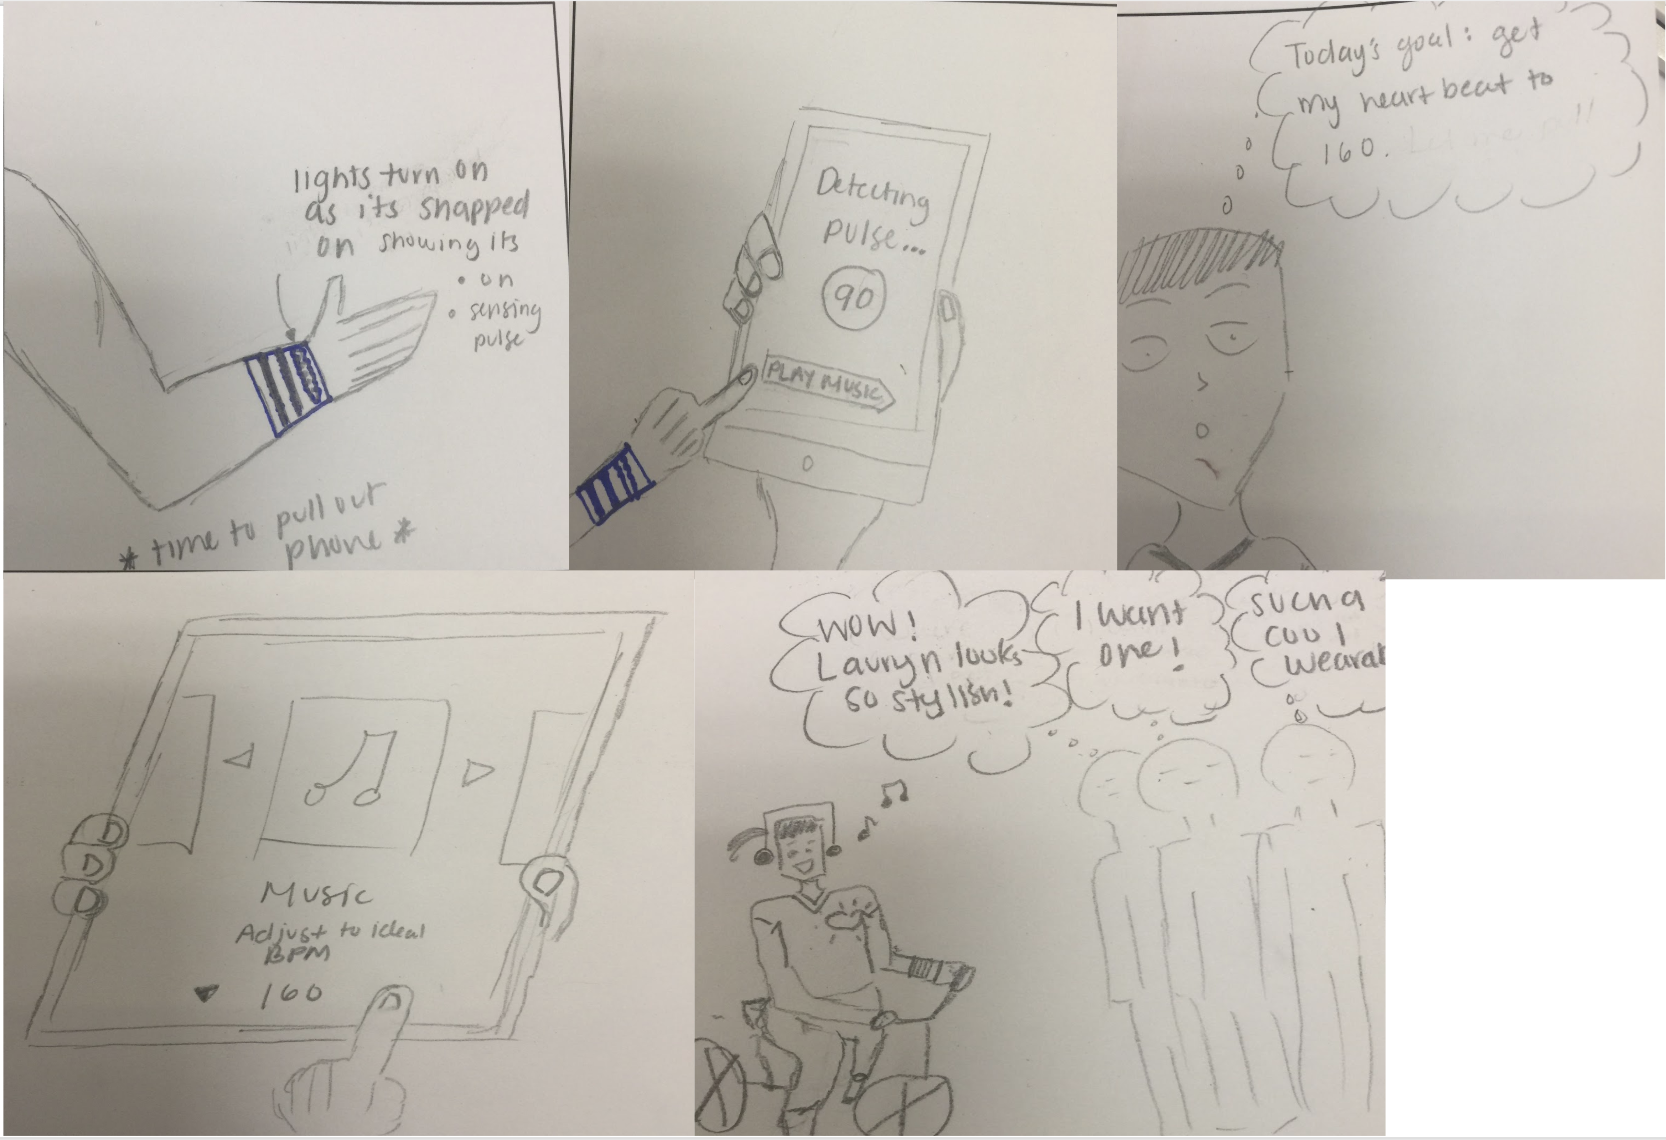 lights turn on
as its snapped
on showing its
• on
• sensing
pulse
* time to pull out
phone *
Detecting
pulse...
90
PLAY MUSIC
Today's goal: get
my heart beat to
160.
Music
Adjust to ideal
BPM
160
WOW!
Lauryn looks
so stylish!
I want
one!
such a
cool
wearab